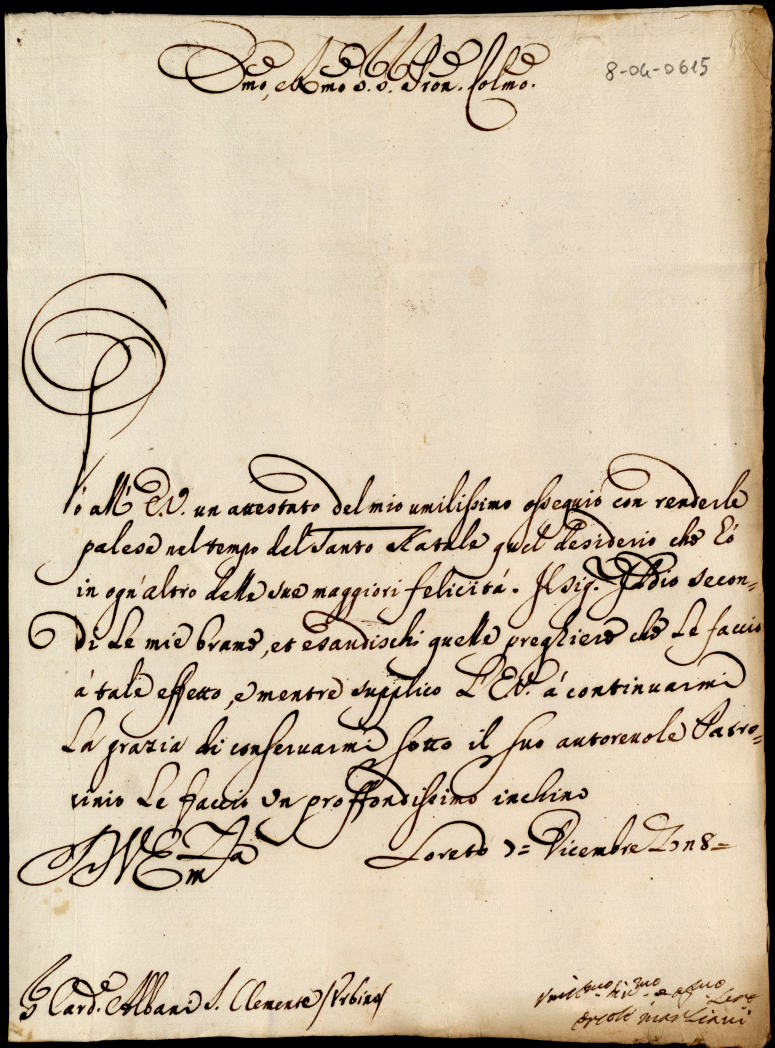 Emo, e Rmo S. S. Pron. Colmo.
8-04-0615
Dó all' E.V. un attestato del mio umilissimo ossequio con renderle
palese nel tempo del Santo Natale quel desiderio che hó
in ogn'altro delle sue maggiori felicità. Il Sig. Iddio secon=
di le mie brame, et esaudischi quelle preghiere che le faccio
á tale effetto, e mentre supplico L'E.V. á continuarmi
la grazia di conservarmi sotto il suo autorevole Patro=
cinio le faccio un proffondissimo inchino
D V Em.za
Loreto 7= Dicembre
Card. Albani S. Clemente /Urbino/
Ercole Marziani